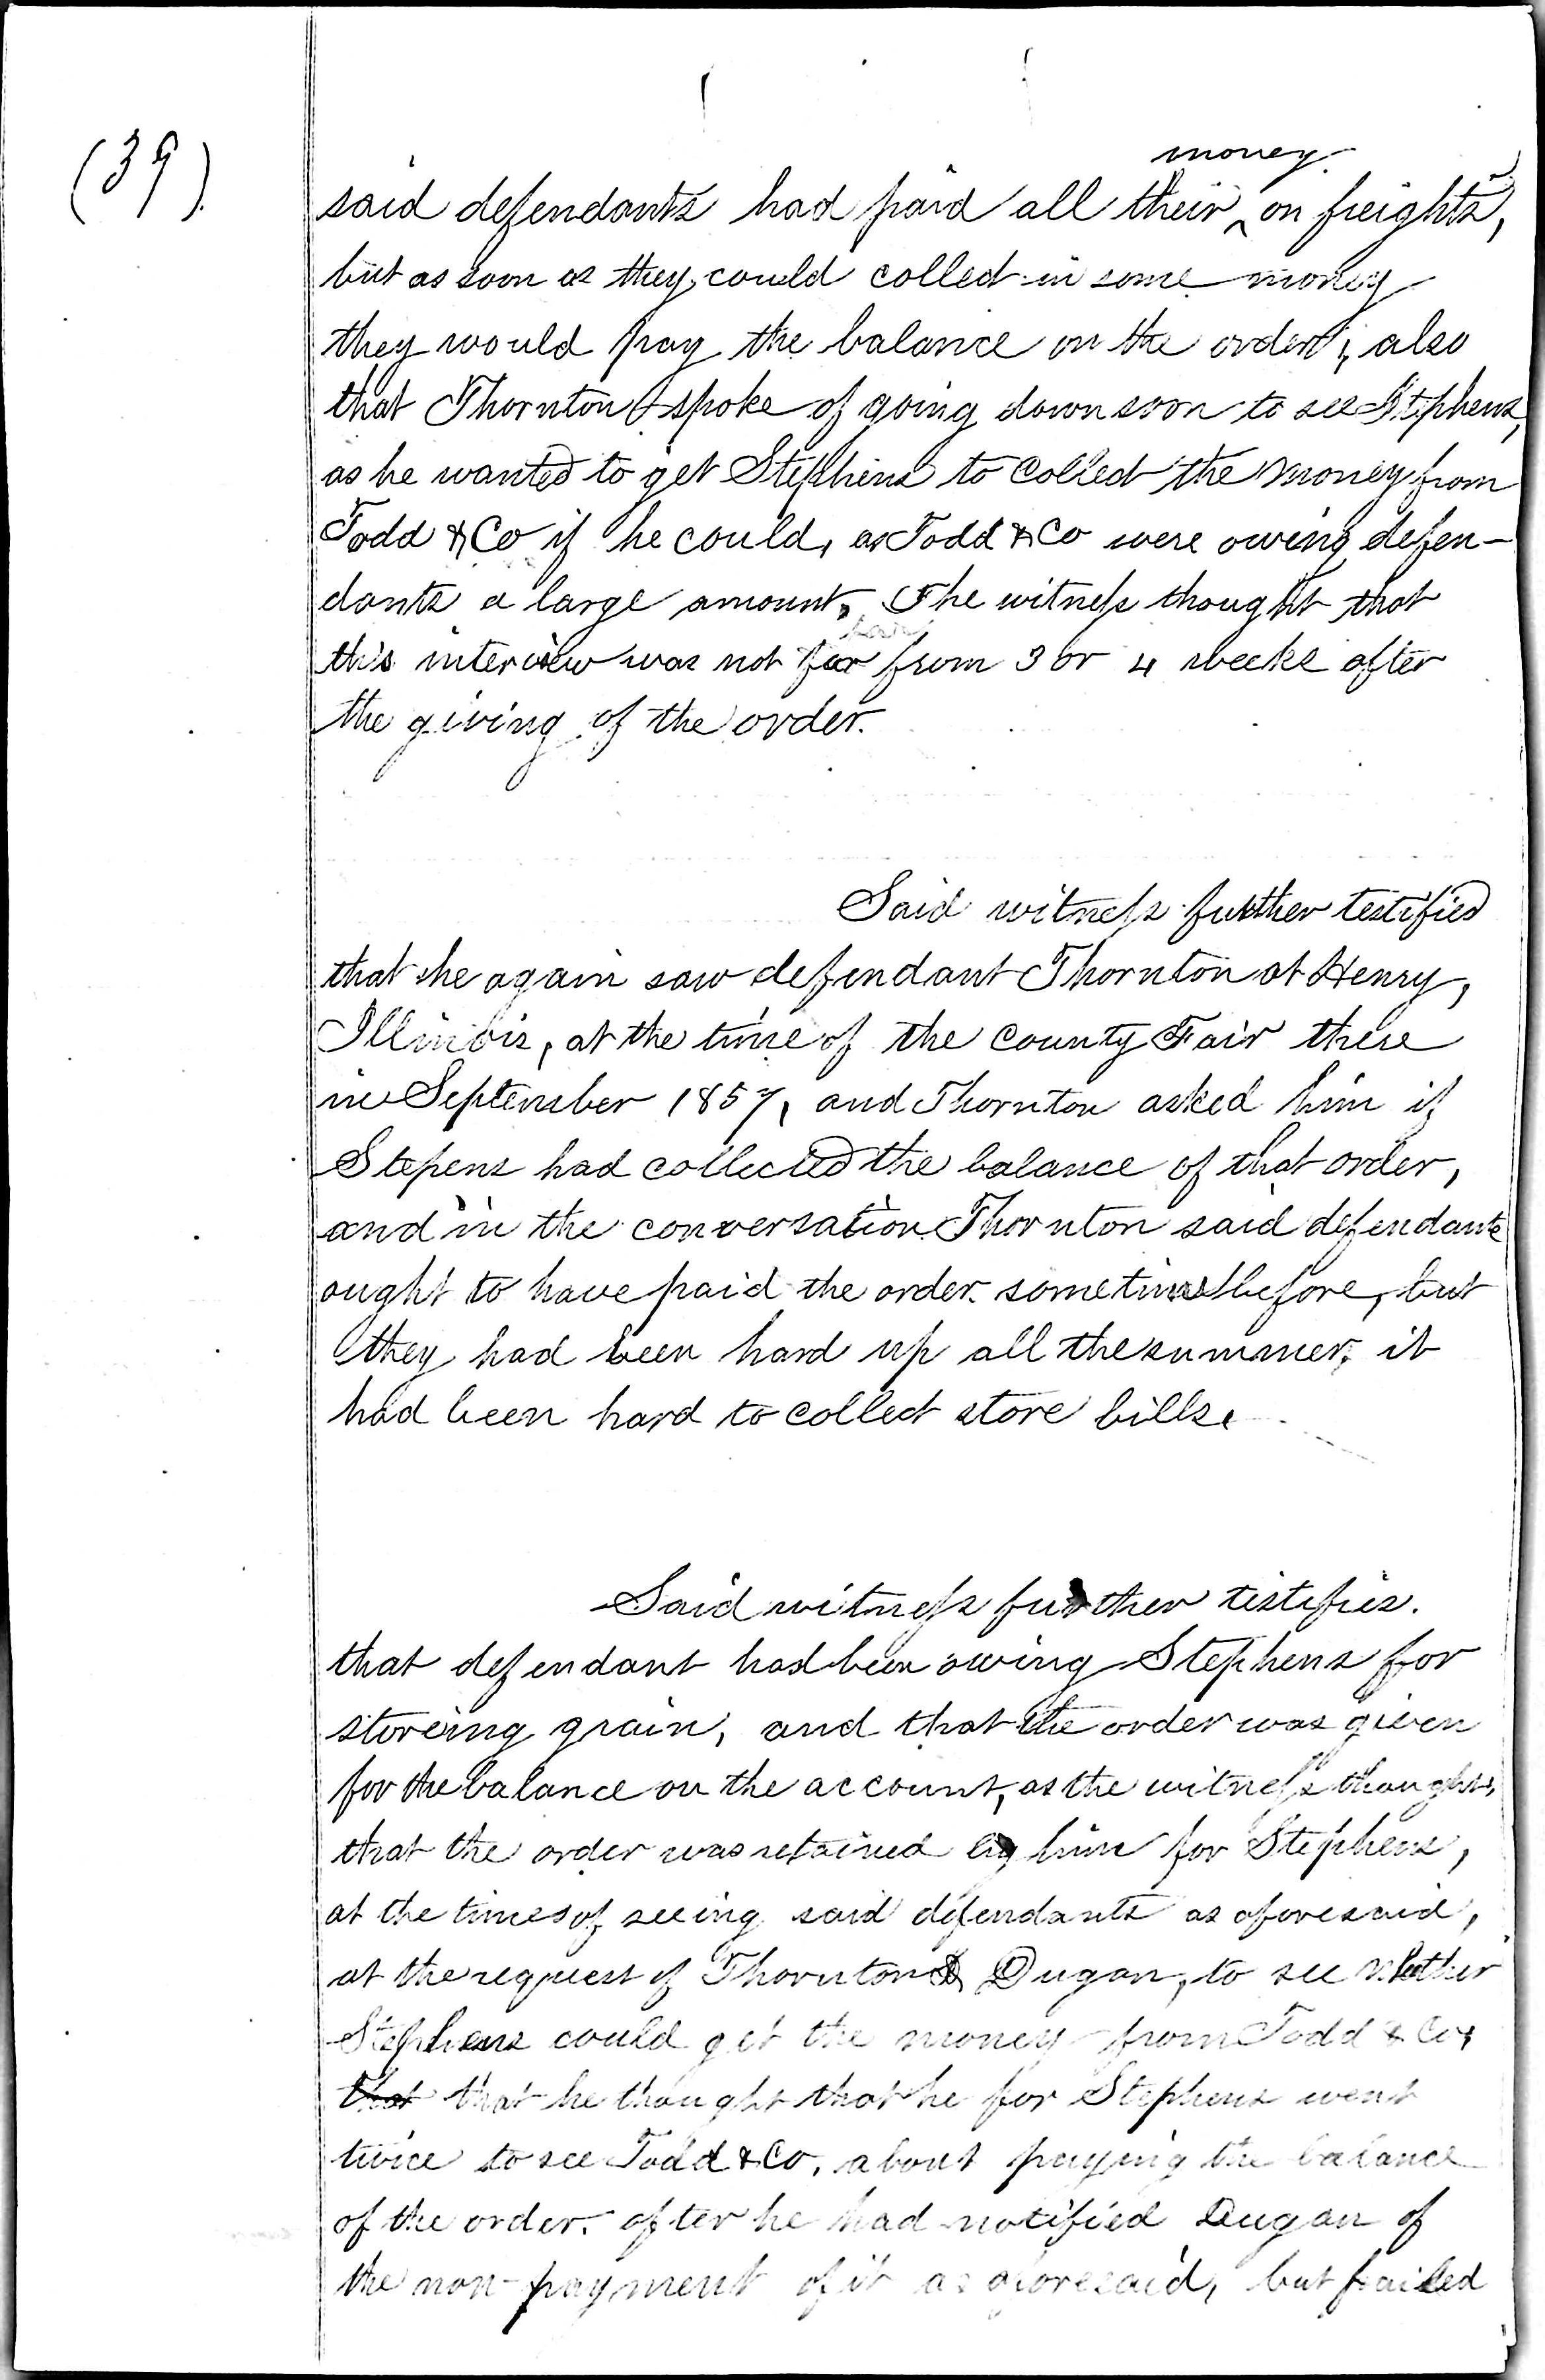 (39)
money
said defendants had paid all their ‸ on freights,
but as soon as they could collect in some money
they would pay the balance on the order; also
that Thornton spoke of going down soon to see Stephens,
as he wanted to get Stephens to collect the money from
Todd & Co if he could, as Todd & Co were owing defen-
dants a large amount. The witness thought that
this interview was not far from 3 or 4 weeks after
the giving of the order.
Said witness further testified
that he again saw defendant Thornton at Henry,
Illinois, at the time of the County Fair there
in September 1857, and Thornton asked him if
Stepens had collected the balance of that order,
and in the conversation Thornton said defendants
ought to have paid the order sometime before, but
they had been hard up all the summer, it
had been hard to collect store bills.
Said witness further testifies.
that defendant had been owing Stephens for
storeing grain, and that the order was given
for the balance on the account, as the witness thought,
that the order was retained by him for Stephens,
at the times of seeing said defendants as aforesaid,
at the request of Thornton & Dugan, to see whether
Stephens could get the money from Todd & Co,
that that he thought that he for Stephens went
twice to see Todd & Co. about paying the balance
of the order. after he had notified Dugan of
the non-payment of it as aforesaid, but failed